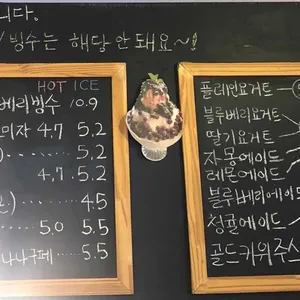 니다.
빙수는 해당 안 돼요~!
HOT ICE
베리빙수 10.9
미자 4.7 5.2
5.2
4.7 5.2
4.5
5.0 5.5
나나구페 5.5
플레인요거트
블루베리요거트
딸기요거트
자몽에이드
레몬에이드
블루베리에이드
청귤에이드
골드키위주스